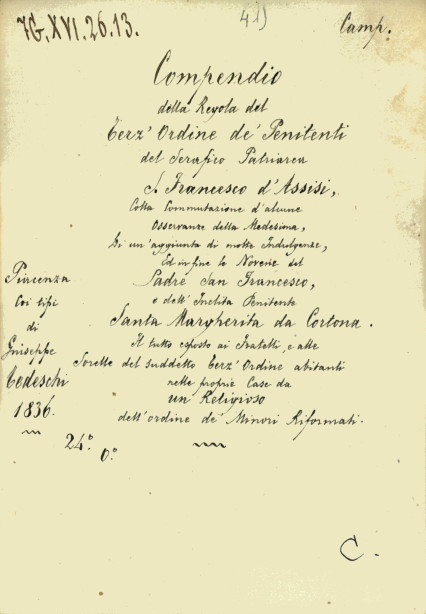 7G.XVI.26.13.
41)
Camp.
Compendio
della Regola del
Terz' Ordine de' Penitenti
del Serafico Patriarca
S. Francesco d'Assisi,
Colla Commutazione d'alcune
Osservanze della Medesima,
Di un'aggiunta di molte Indulgenze,
Ed infine le Novene del
Padre San Francesco,
e dell'Inclita Penitente
Santa Margherita da Cortona.
Il tutto esposto ai Fratelli, e alle
Sorelle del suddetto Terz' Ordine abitanti
nelle proprie Case da
un Religioso
dell'ordine de' Minori Riformati.
Piacenza
Coi tipi
di
Giuseppe
Tedeschi
1836.
24.º
0.º
C.